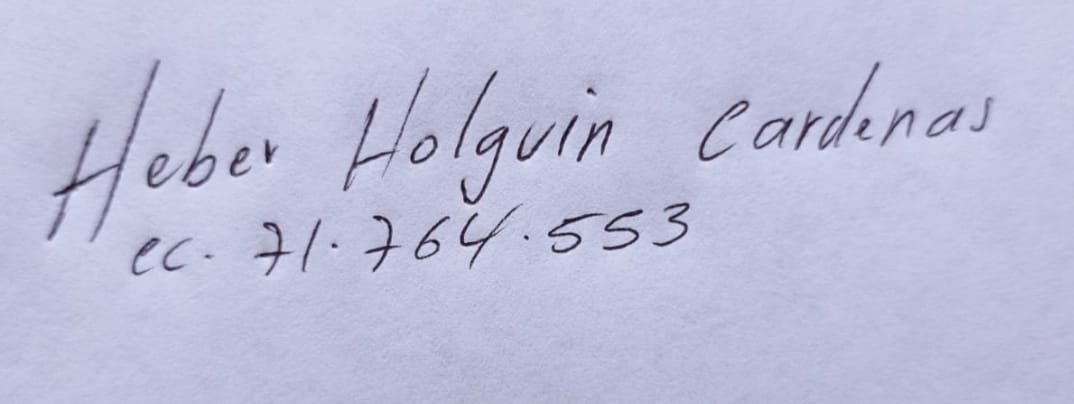 Heber Holguin Cardenas
cc. 71.764.553